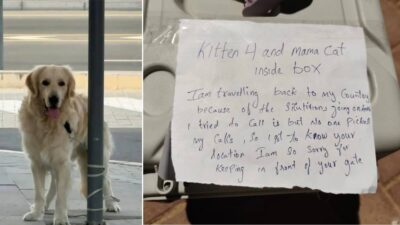 Kitten 4 and mama cat
inside box
I am travelling back to my Country
because of the going
I tried to Call is but no one Picked
my Calls, so I got to know your
location I am so sorry for
keeping in front of your gate